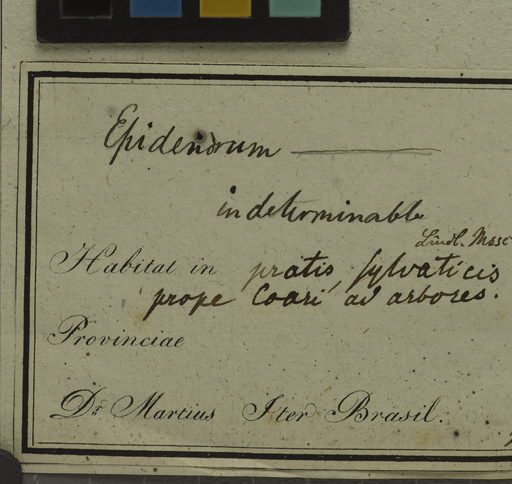 Epidendrum
indeterminable
Lindl. Mssc
Habitat in pratis, sylvaticis
prope Coari ad arbores.
Provinciae
Dr. Martius Iter Brasil.